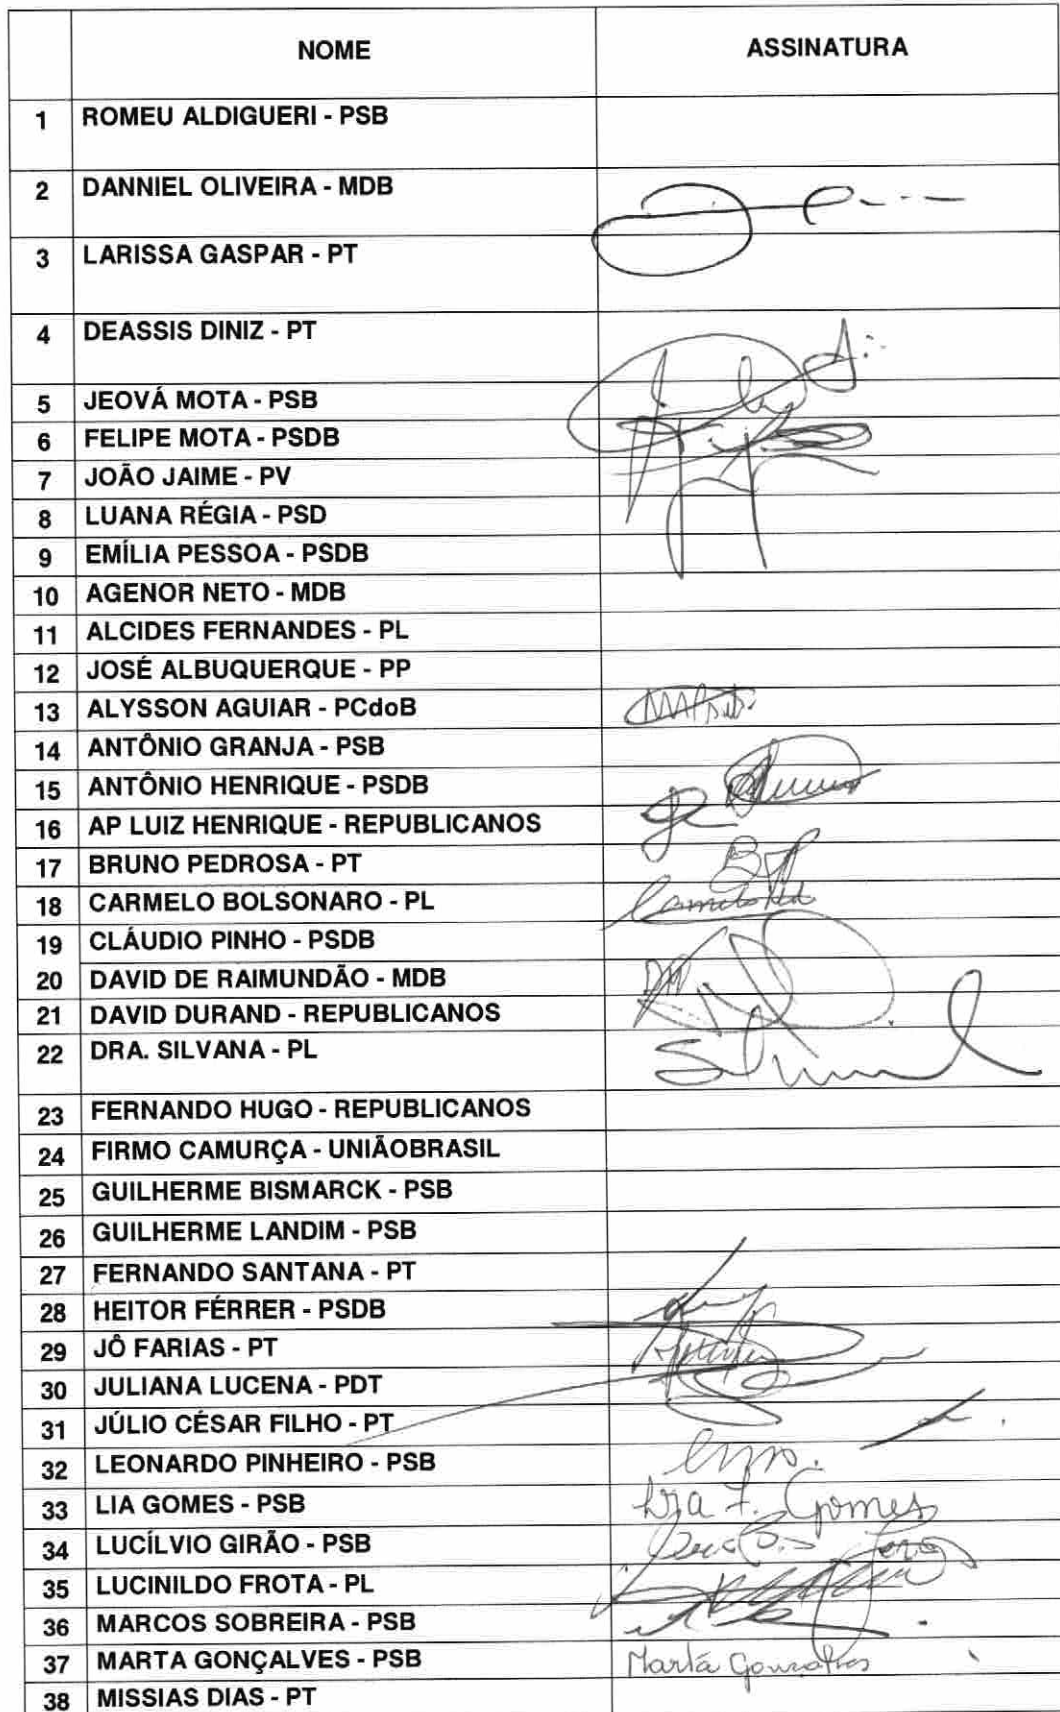 NOME ASSINATURA
1 ROMEU ALDIGUERI - PSB
2 DANNIEL OLIVEIRA - MDB
3 LARISSA GASPAR - PT
4 DEASSIS DINIZ - PT
5 JEOVÁ MOTA - PSB
6 FELIPE MOTA - PSDB
7 JOÃO JAIME - PV
8 LUANA RÉGIA - PSD
9 EMÍLIA PESSOA - PSDB
10 AGENOR NETO - MDB
11 ALCIDES FERNANDES - PL
12 JOSÉ ALBUQUERQUE - PP
13 ALYSSON AGUIAR - PCdoB
14 ANTÔNIO GRANJA - PSB
15 ANTÔNIO HENRIQUE - PSDB
16 AP LUIZ HENRIQUE - REPUBLICANOS
17 BRUNO PEDROSA - PT
18 CARMELO BOLSONARO - PL
19 CLÁUDIO PINHO - PSDB
20 DAVID DE RAIMUNDÃO - MDB
21 DAVID DURAND - REPUBLICANOS
22 DRA. SILVANA - PL
23 FERNANDO HUGO - REPUBLICANOS
24 FIRMO CAMURÇA - UNIÃOBRASIL
25 GUILHERME BISMARCK - PSB
26 GUILHERME LANDIM - PSB
27 FERNANDO SANTANA - PT
28 HEITOR FÉRRER - PSDB
29 JÔ FARIAS - PT
30 JULIANA LUCENA - PDT
31 JÚLIO CÉSAR FILHO - PT
32 LEONARDO PINHEIRO - PSB
33 LIA GOMES - PSB Lia F. Gomes
34 LUCÍLVIO GIRÃO - PSB
35 LUCINILDO FROTA - PL
36 MARCOS SOBREIRA - PSB
37 MARTA GONÇALVES - PSB Marta Gonçalves
38 MISSIAS DIAS - PT